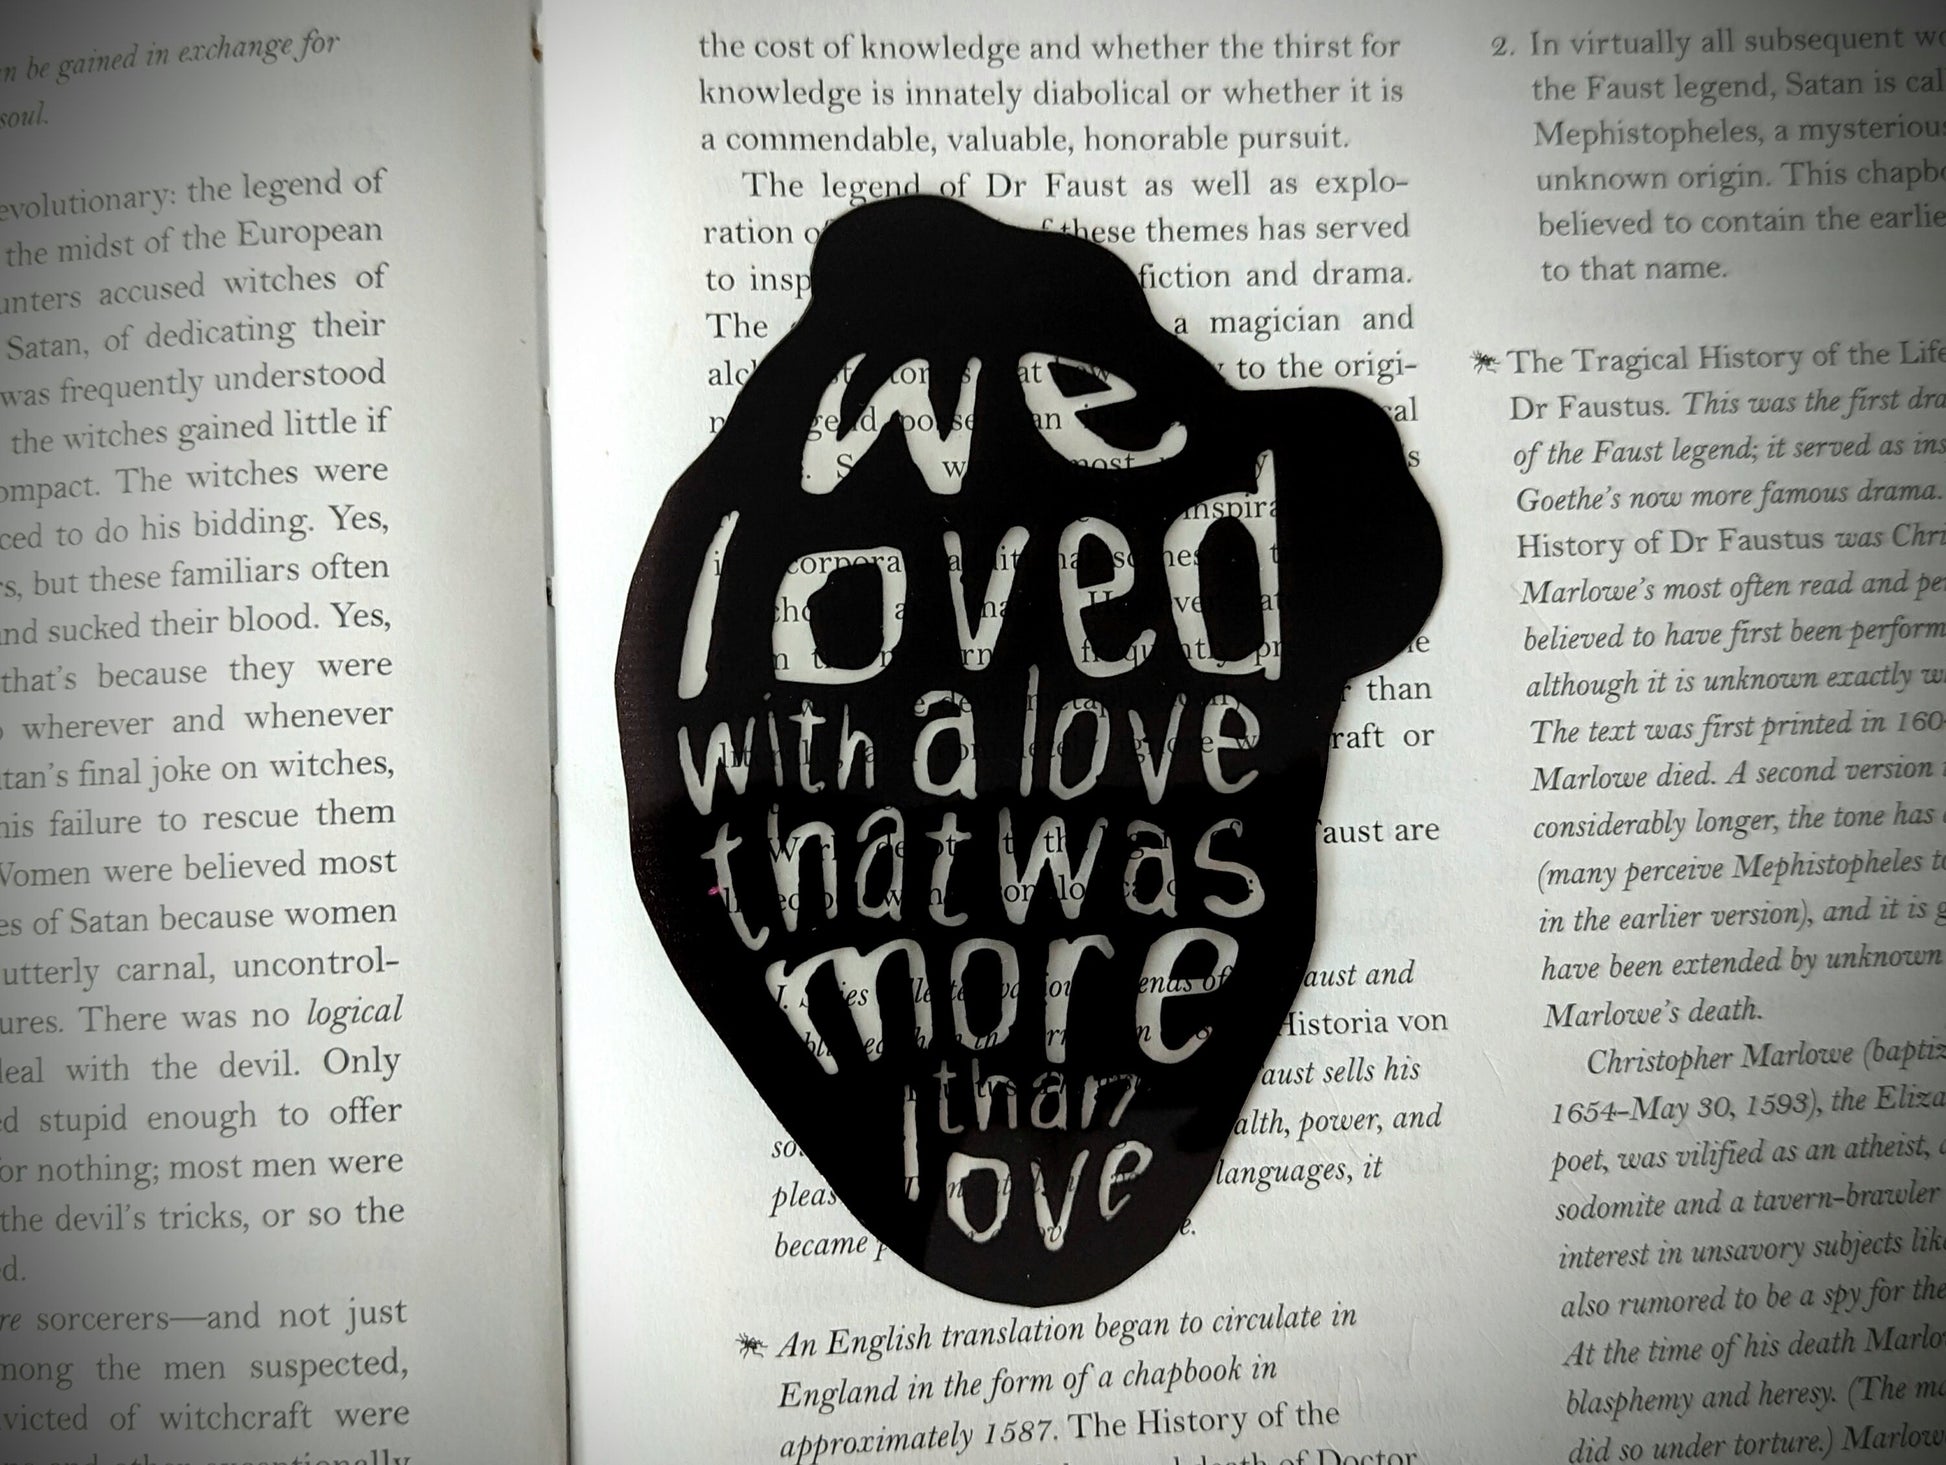 n be gained in exchange for
soul.
evolutionary: the legend of
the midst of the European
unters accused witches of
Satan, of dedicating their
was frequently understood
the witches gained little if
ompact. The witches were
ced to do his bidding. Yes,
rs, but these familiars often
nd sucked their blood. Yes,
that's because they were
wherever and whenever
tan's final joke on witches,
his failure to rescue them
Women were believed most
es of Satan because women
utterly carnal, uncontrol-
ures. There was no logical
deal with the devil. Only
ed stupid enough to offer
or nothing; most men were
the devil's tricks, or so the
d.
re sorcerers—and not just
mong the men suspected,
victed of witchcraft were
the cost of knowledge and whether the thirst for
knowledge is innately diabolical or whether it is
a commendable, valuable, honorable pursuit.
The legend of Dr Faust as well as explo-
ration of these themes has served
to insp fiction and drama.
The a magician and
alc to the origi-
we
loved
with a love
that was
more
than
love
than
raft or
Faust are
aust and
Historia von
aust sells his
alth, power, and
languages, it
pleas
became
An English translation began to circulate in
England in the form of a chapbook in
approximately 1587. The History of the
death of Doctor
2. In virtually all subsequent wo
the Faust legend, Satan is cal
Mephistopheles, a mysterious
unknown origin. This chapbo
believed to contain the earlie
to that name.
The Tragical History of the Life
Dr Faustus. This was the first dra
of the Faust legend; it served as ins
Goethe's now more famous drama.
History of Dr Faustus was Chri
Marlowe's most often read and pe
believed to have first been perform
although it is unknown exactly w
The text was first printed in 160
Marlowe died. A second version
considerably longer, the tone has
(many perceive Mephistopheles to
in the earlier version), and it is g
have been extended by unknown
Marlowe's death.
Christopher Marlowe (baptiz
1654–May 30, 1593), the Eliza
poet, was vilified as an atheist,
sodomite and a tavern-brawler
interest in unsavory subjects lik
also rumored to be a spy for the
At the time of his death Marlo
blasphemy and heresy. (The ma
did so under torture.) Marlow